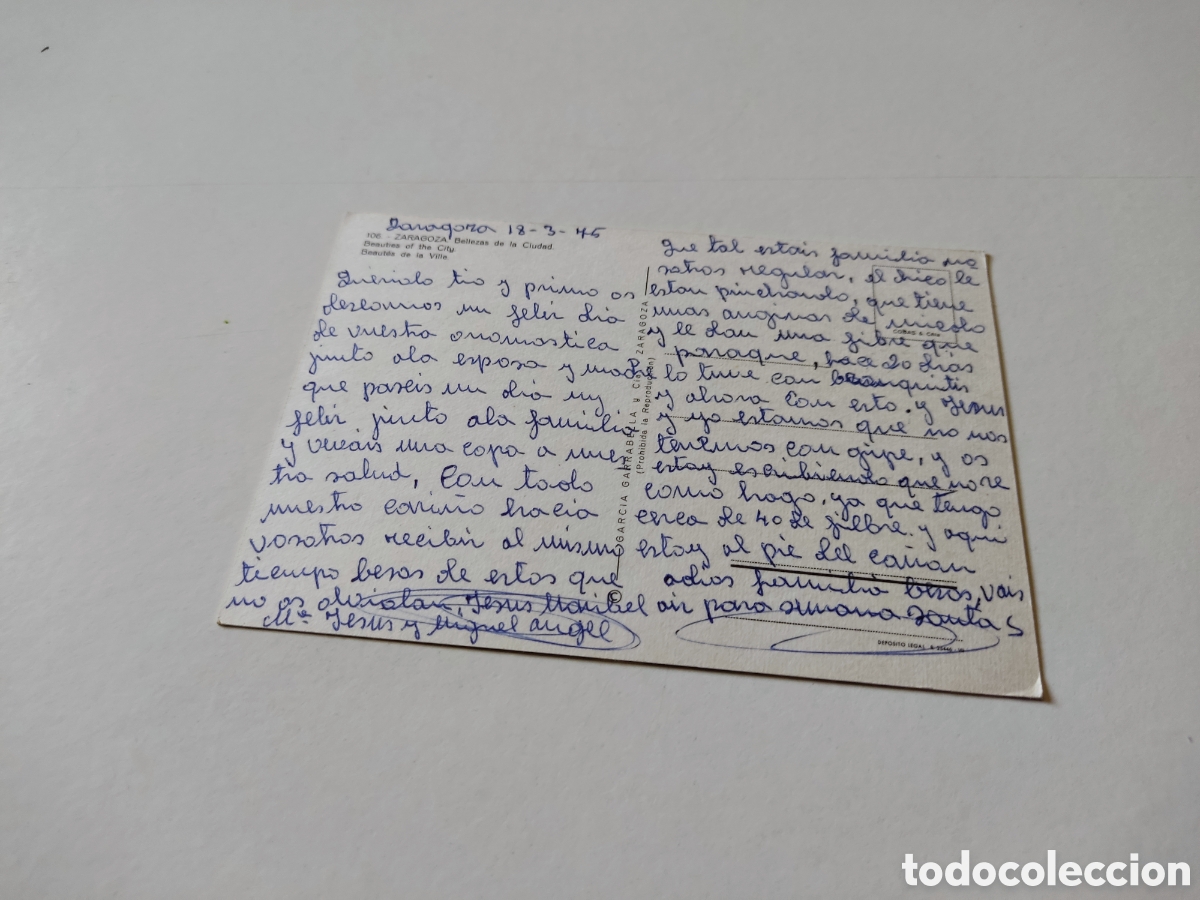 Zaragoza 18-3-76
106. - ZARAGOZA. Bellezas de la Ciudad.
Beauties of the City.
Beautés de la Ville.
Querido tio y primo os
deseamos un feliz dia
de vuestra onomastica
junto ala esposa y madre
que paseis un dia muy
feliz junto ala familia
y vevais una copa a nues
tra salud, Con todo
nuestro cariño hacia
vosotros recibir al mismo
tiempo besos de estos que
no os olvidan, Jesus Maribel
Mª Jesus y Miguel Angel
GARCIA GARRABELLA y Cia. ZARAGOZA
(Prohibida la Reproducción)
©
Que tal estais familia no
sotros regular, el chico le
estan pinchando, que tiene
unas anginas de miedo
y le dan una fibre que
paraque, hace 20 dias
lo tuve con bronquitis
y ahora con esto. y Jesus
y yo estamos que no nos
tenemos con gripe, y os
estoy escribiendo que no se
como hago, ya que tengo
cerca de 40 de filbre. y aqui
estoy al pie del cañon
adios familia besos, vais
air para semana santa
DEPOSITO LEGAL B.
todocoleccion